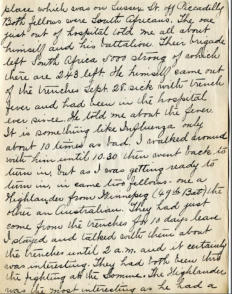 place which was on Sussex St. off Piccadilly
Both fellows were South Africans. The one
just out of hospital told me all about
himself and his battalion. Their brigade
left South Africa 5000 strong of which
there are 243 left. He himself came out
of the trenches Sept 28. sick with trench
fever and had been in the hospital
ever since. He told me about the fever.
It is something like Influenza only
about 10 times as bad. I walked around
with him until 10.30 then went back to
turn in, but as I was getting ready to
turn in, in came two fellows: one a
Highlander from Winnepeg (49th Batt) the
other an Australian. They had just
come from the trenches for 10 days leave
I stayed and talked with them about
the trenches until 2 a.m. and it certainly
was interesting. They had both been thro
the fighting at the Somme. The Highlander
was the most interesting as he had a